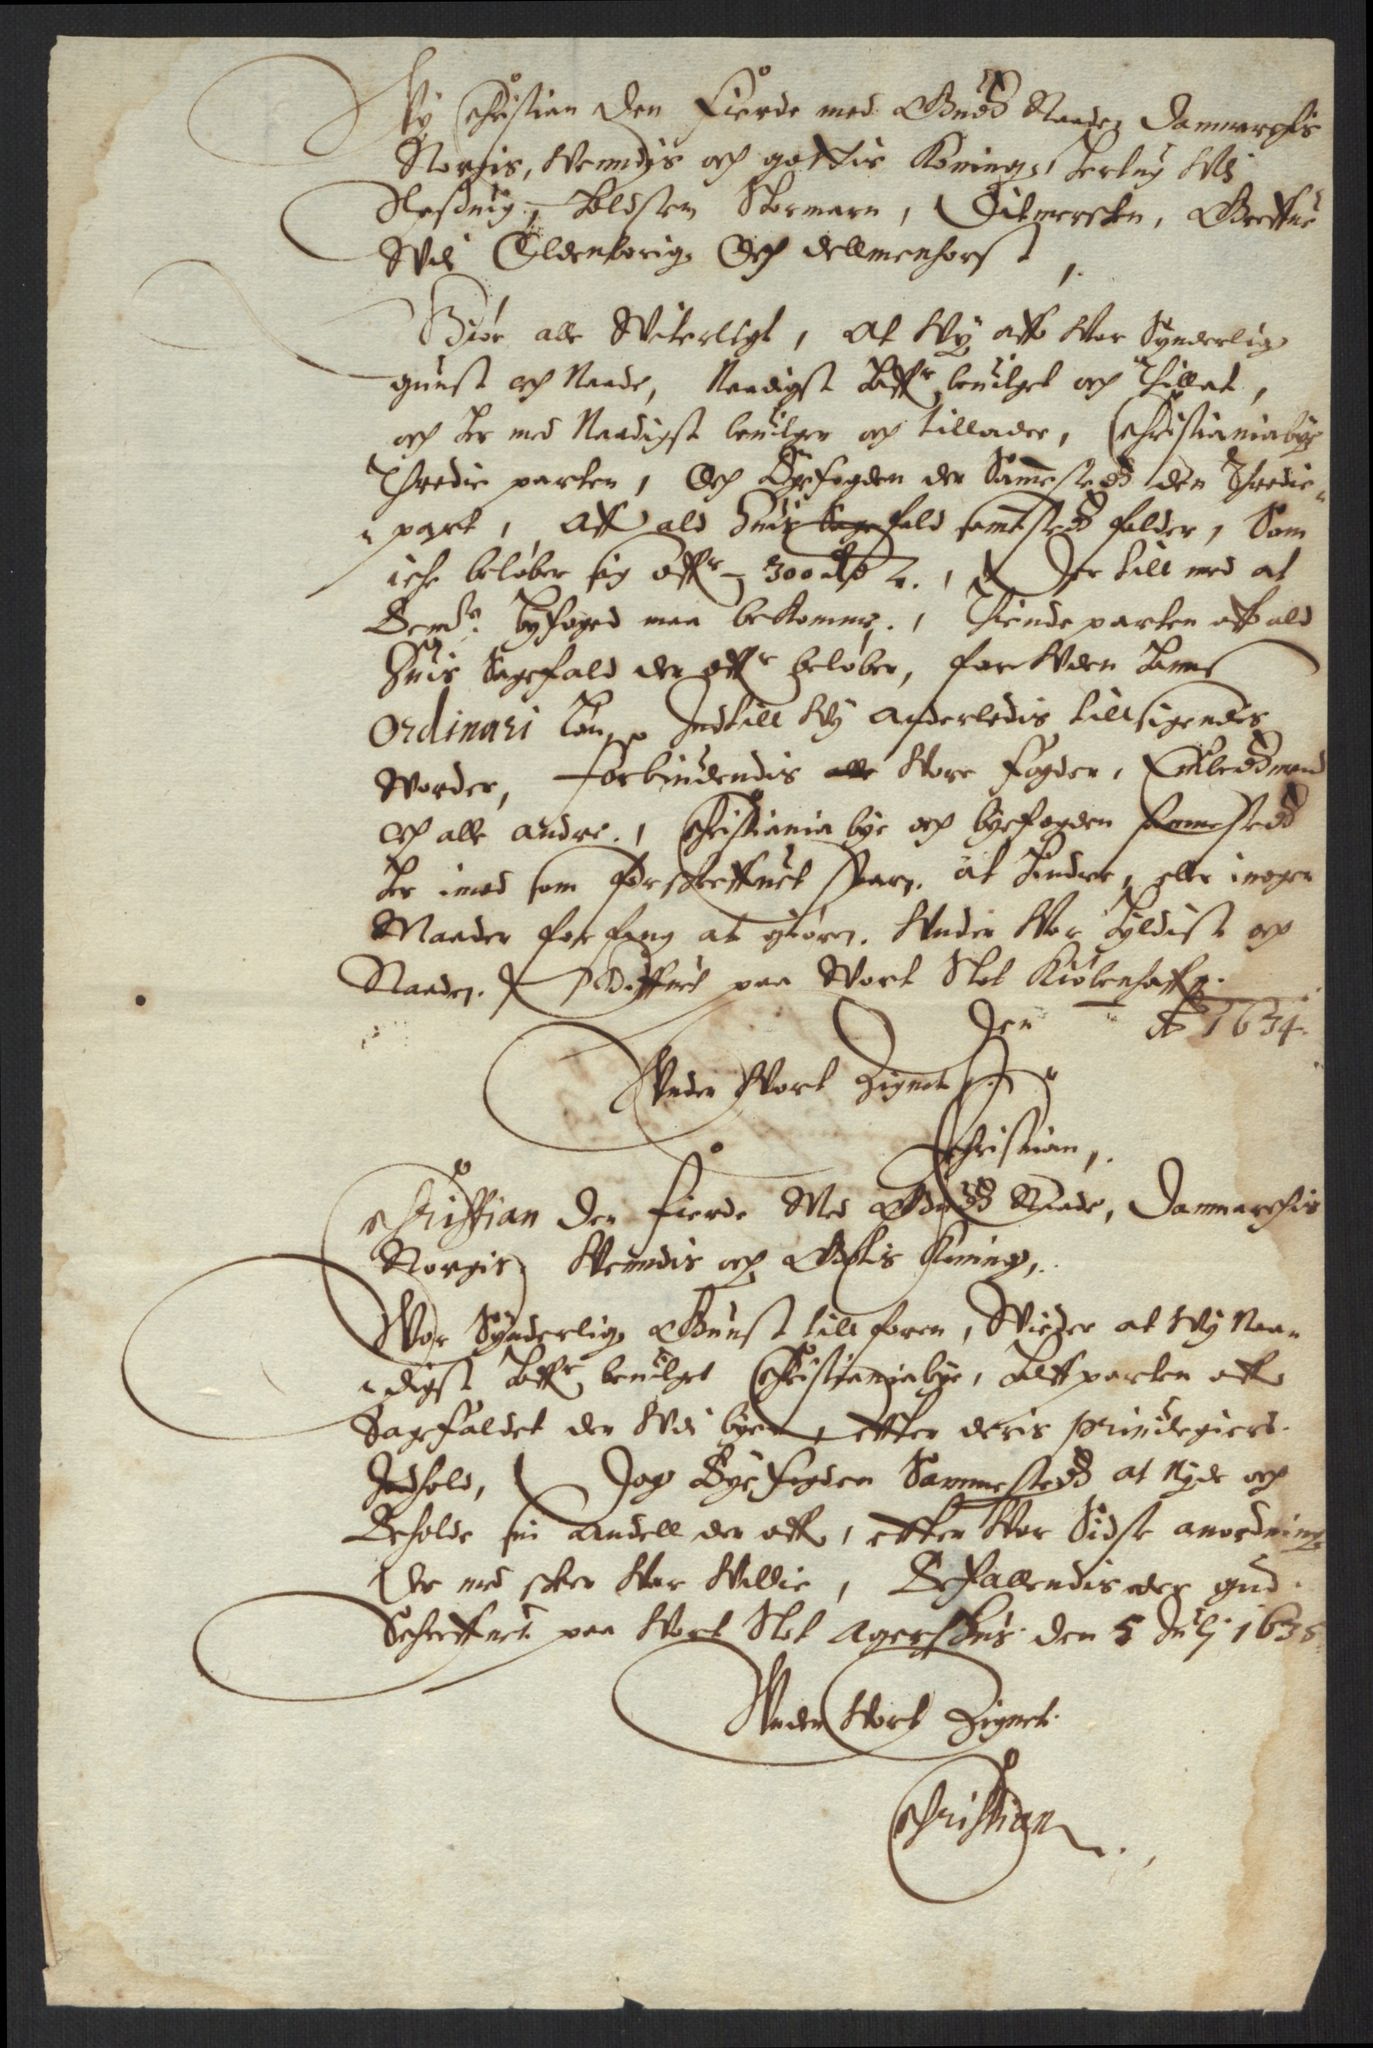 Wy Christian den Fierde med Gudz Naade, Danmarchis
Norgis, Wendis och gottis Koning, Hertug Udi
Slesuig, Holsten Stormarn, Ditmersken, Greffue
Udi Oldenborig, Och Dellmenhorst,
Giør alle Witerligt, At Wy aff Wor Synderlig
gunst och Naade, Naadigst haffr beuilget och Thillat,
och her med Naadigst beuilger och tillader, Christiania bye
Thredie parten, Och Byefogden der Sammestedz den Thredie
part, Aff ald huis Sagefald samestedz falder, Som
iche beløber sig offr 300 dlr, Der till med at
Bemte byfoged maa bekomme, Thiende parten aff ald
huis Sagefald der offr beløber, for Uden hans
Ordinari Løn, Indtill Wy anderledis tillsigendes
Worder, Forbiudendis alle Wore Fogder, Embedzmend
och alle andre, Christiania bye och byefogden samestedz
her imod som forschreffuet staar, at hindre, eller i nogen
Maader forfang at giøre, Under Wor hyldist och
Naade, Schreffuet paa Wort Slot Kiøbenhaffn
den Ao 1634.
Under Wort Zignet
Christian,
Christian den Fierde Med Gudz Naade, Danmarchis
Norgis, Wendis och Gottis Koning,
Wor Synderlig Gunst till foren, Wider at Wy Naa
digst haffr beuilget Christiania bye, halffparten aff
Sagefaldet der Udi byen, effter deris priuilegiers
Indhold, Dog Byefogden Sammestedz at Nyde och
Beholde sin Andell der aff, effter Wor Sidste anordning
Der med skeer Wor Willie, Befallendis eder gud
Schreffuet paa Wort Slot Agershus den 5 Julj 1635
Under Wort Zignet
Christian